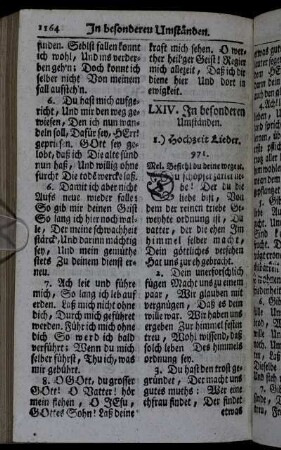 1164 In besonderen Umständen.
finden. Selbst fallen konnt
ich wohl, Und ins verder-
ben geh'n: Doch konnt ich
selber nicht Von meinem
fall aufsteh'n.
6. Du hast mich aufge-
richt, Und mir den weg ge-
wiesen, Den ich nun wan-
deln soll, Dafür sey, HErr
gepriesen. GOtt sey ge-
lobt, daß ich Die alte sünd
nun haß, Und willig ohne
furcht Die todte wercke laß.
6. Damit ich aber nicht
Aufs neue wieder falle:
So gib mir deinen Geist
So lang ich hier noch wal-
le, Der meine schwachheit
stärck, Und darinn mächtig
sey, Und mein gemüthe
stets Zu deinen dienst er-
neu.
7. Ach leit und führe
mich, So lang ich leb auf
erden. Laß mich nicht ohne
dich, Durch mich geführet
werden. Führ ich mich ohne
dich So werd ich bald
verführt: Wenn du mich
selber führst, Thu ich, was
mir gebührt.
8. O GOtt, du grosser
GOtt! O Vatter! hör
mein flehen, O JEsu,
GOttes Sohn! Laß deine
kraft mich sehen, O wer-
ther heil'ger Geist! Regier
mich allezeit, Daß ich dir
diene hier Und dort in
ewigkeit.
LXIV. In besonderen
Umständen.
1.) Hochzeit Lieder.
971.
Mel. Befiehl du deine wege ꝛc.
Du schöpfer zarter lie-
be! Der du die
liebe bist, Von
dem der reinen triebe Ge-
webt ordnung ist, Du
vatter, der die ehen Im
himmel selber macht,
Dein göttliches versehen
Hat uns zur eh gebracht.
2. Dein unerforschlich
fügen Macht uns zu einem
paar, Wir glauben mit
vergnügen, Daß es dein
wille war. Wir haben uns
ergeben Zur himmel festen
treu, Wohl wissend, daß
solch leben Des himmels
ordnung sey.
3. Du hast den trost ge-
gründet, Der macht uns
gutes muths: Wer eine
ehfrau findet, Der findet
etwas